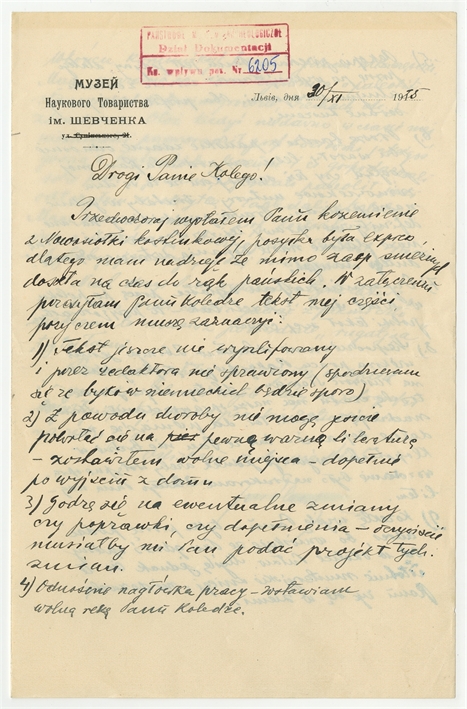 PAŃSTWOWE MUZEUM ARCHEOLOGICZNE
Dział Dokumentacji
Ks. wpływu poz. Nr. 6205
МУЗЕЙ
Наукового Товариства
ім. ШЕВЧЕНКА
Львів, дня 20/XI 1935
Drogi Panie Kolego!
Przedwczoraj wysłałem Panu krzemienie
z Nowosiółki Kostiukowej, posyłka była expres,
dlatego mam nadzieję że mimo
doszła na czas do rąk pańskich. W załączeniu
przesyłam Panu Koledze tekst mej części
przyczem muszę zaznaczyć:
1) Tekst jeszcze nie wyszlifowany
i przez redaktora nie sprawiony (spodziewam
się że byków niemieckich będzie sporo)
2) Z powodu choroby nie mogę jeszcze
powołać się na pewną ważną literaturę
– zostawiłem wolne miejsca – dopełnię
po wyjściu z domu
3) Godzę się na ewentualne zmiany
czy poprawki, czy dopełnienia – oczywiście
musiałby mi Pan podać projekt tych
zmian.
4) Odnośnie nagłówka pracy – zostawiam
wolną rękę Panu Koledze.